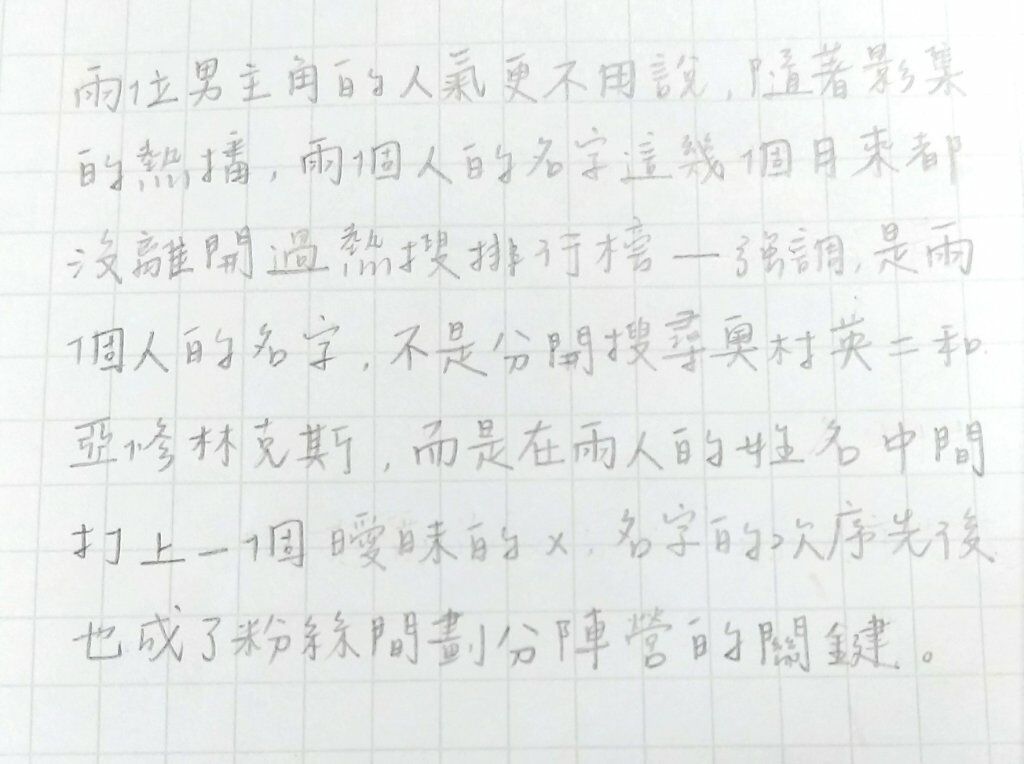 兩位男主角的人氣更不用說，隨著影集
的熱播，兩個人的名字這幾個月來都
沒離開過熱搜排行榜－強調，是兩
個人的名字，不是分開搜尋奧村英二和
亞修林克斯，而是在兩人的姓名中間
打上一個曖昧的x，名字的次序先後
也成了粉絲間劃分陣營的關鍵。